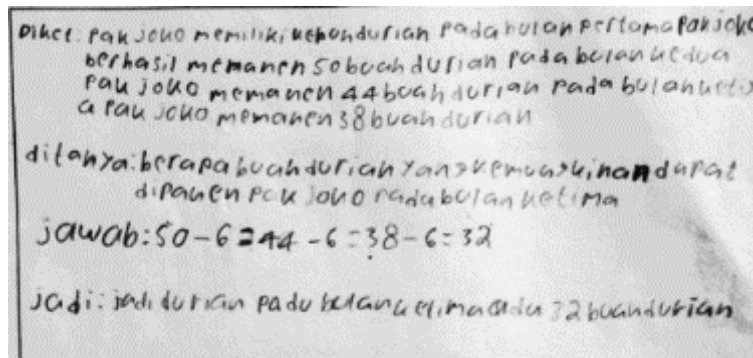 Diket: pak joko memiliki kebon durian pada bulan pertama pak joko
berhasil memanen 50 buah durian pada bulan kedua
pak joko memanen 44 buah durian pada bulan keti
a pak joko memanen 38 buah durian
ditanya: berapa buah durian yang kemungkinan dapat
dipanen pak joko pada bulan kelima
jawab: 50 - 6 = 44 - 6 = 38 - 6 = 32
jadi: jadi durian pada bulan kelima ada 32 buah durian